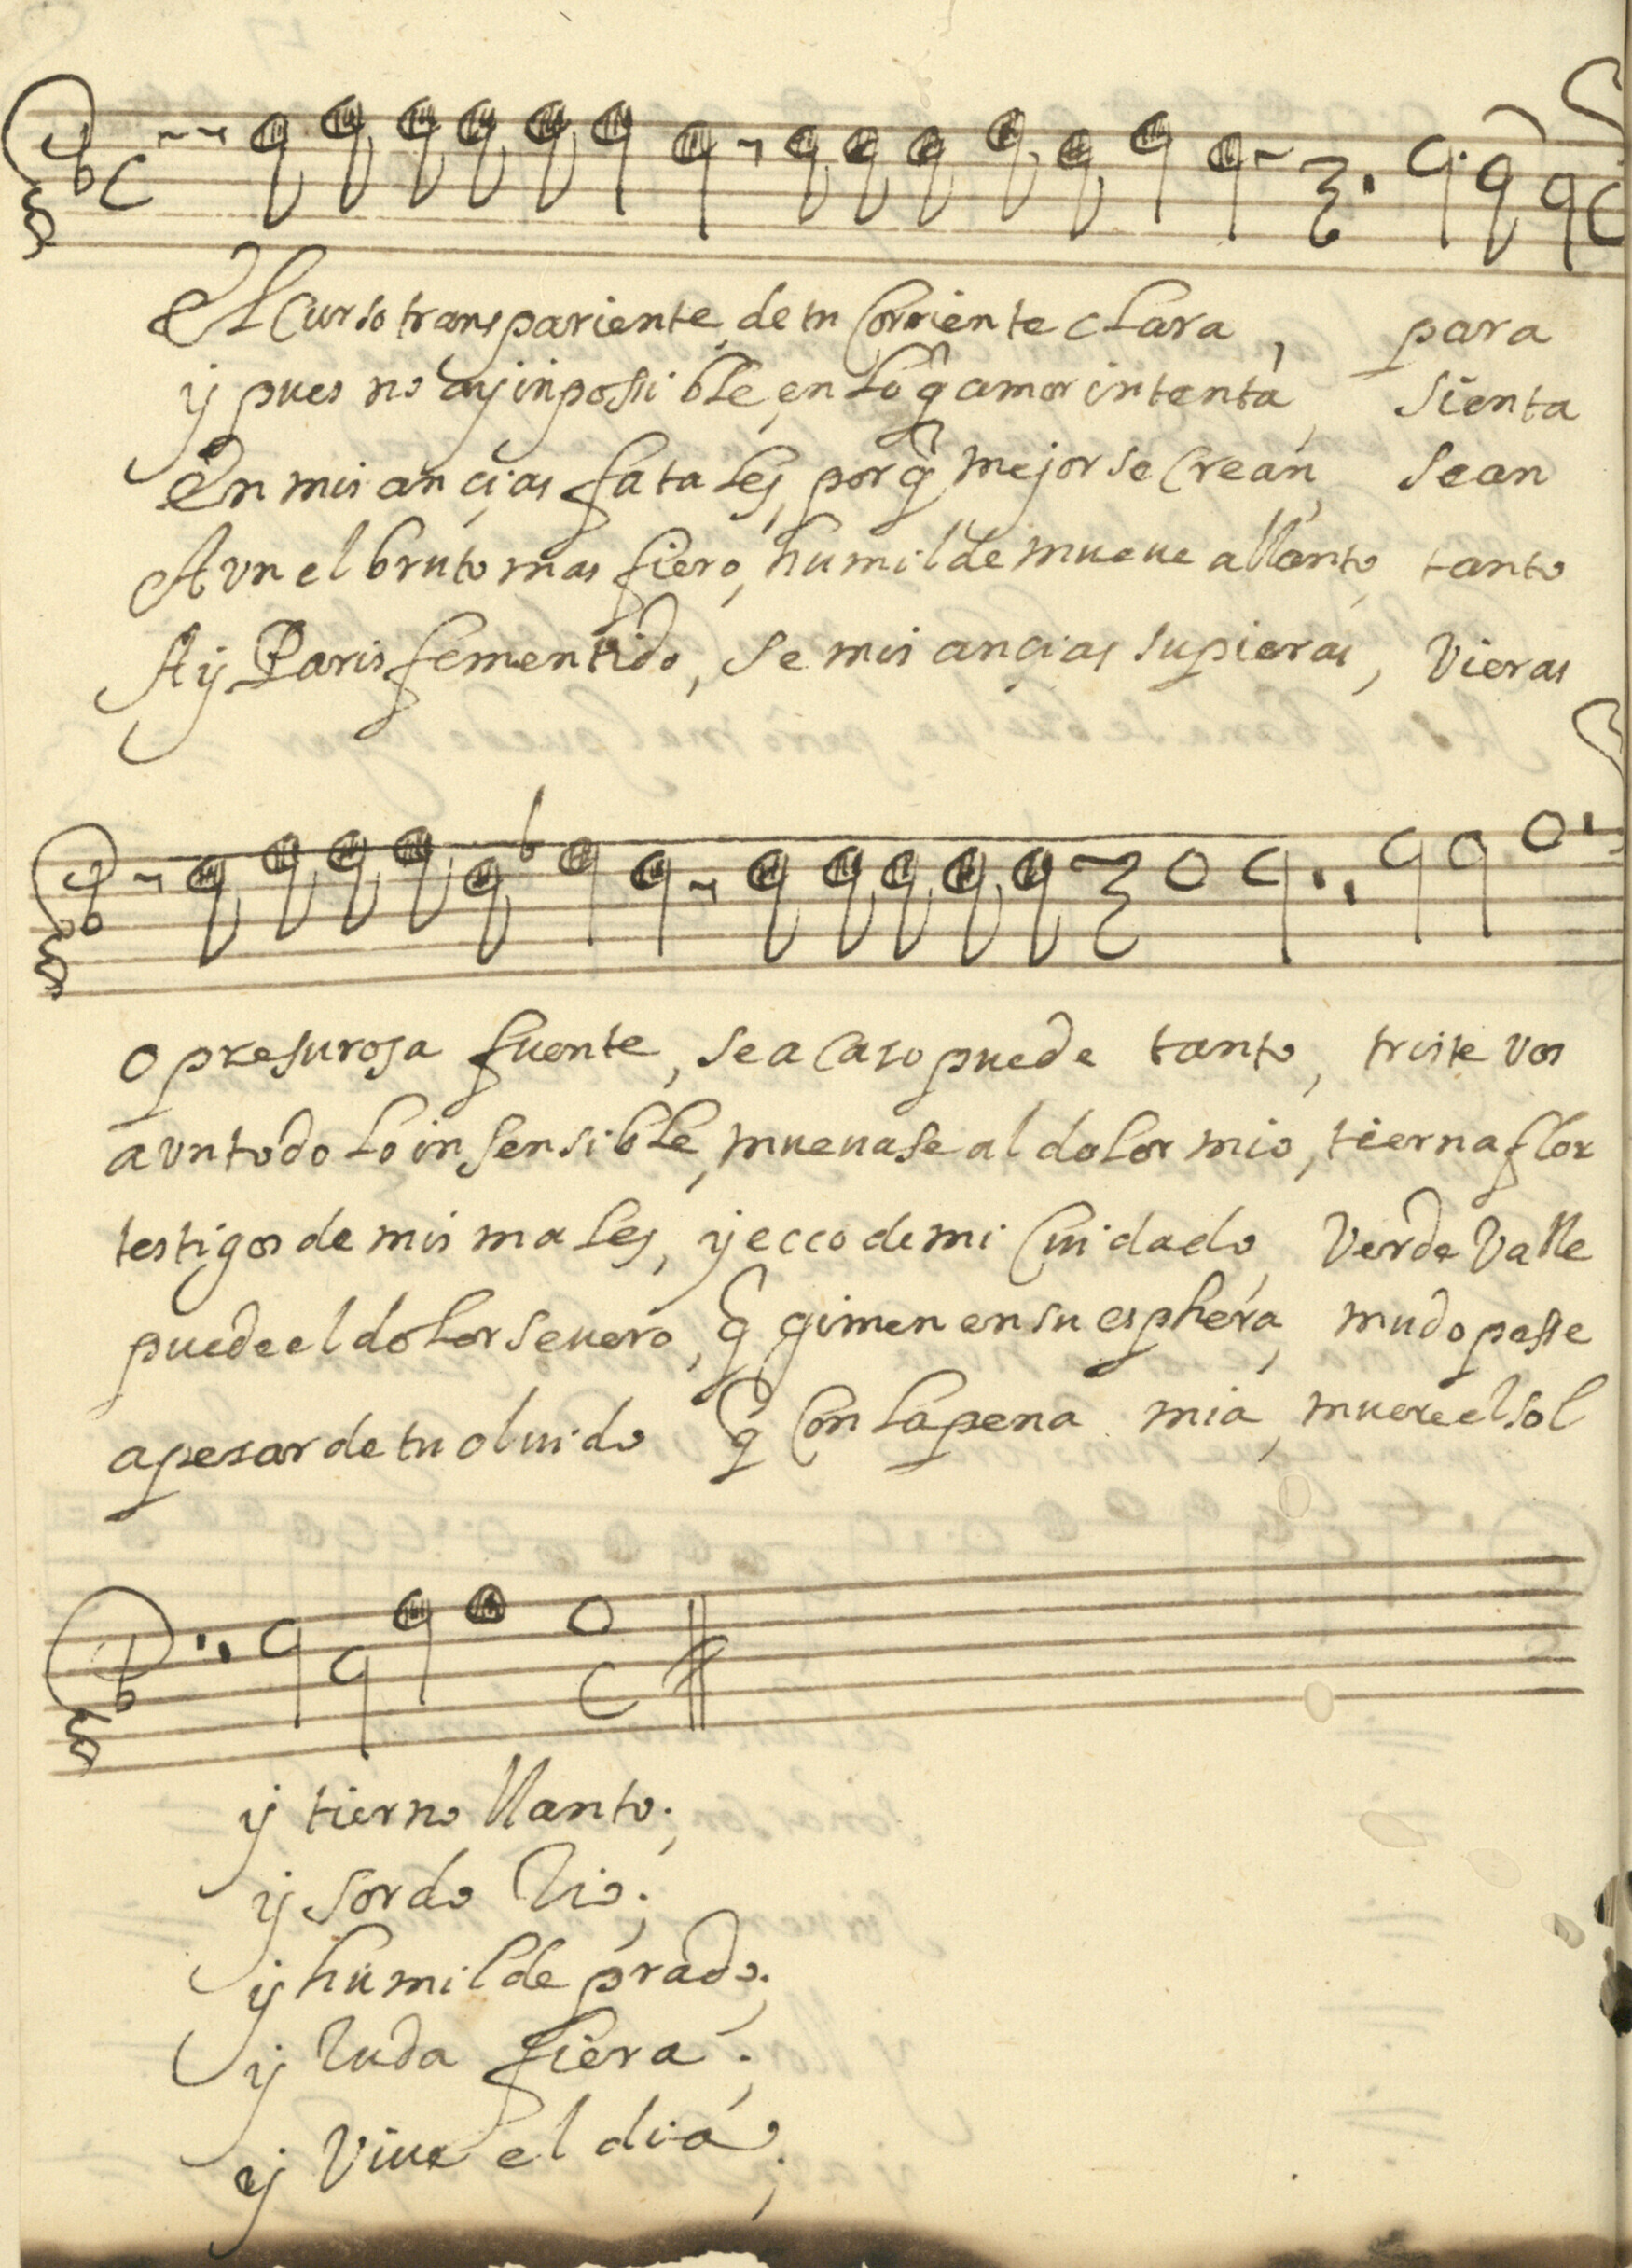 El curso transpariente, de tu Corriente clara, para
y pues no ay inpossible, en lo q̃ amor intenta, sienta
En mis ançias fatales, porq̃ mejor se Crean, sean
Aun el bruto mas fiero, humilde mueue a llanto, tanto
Ay Paris fementido, se mis ançias supieras, Vieras
o presurosa fuente, se a caso puede tanto, triste vos
a vn todo lo insensible, mueuase al dolor mio, tierna flor
testigos de mis males, y ecco de mi Cuidado, Verde Valle
puede el dolor seuero, q̃ gimen en su esphera, mudo pesse
apesar de tu oluido q̃ Con la pena mia, muere el sol
y tierno llanto;
y sordo Rio;
y humilde prado;
y Ruda fiera;
y Viue el dia;